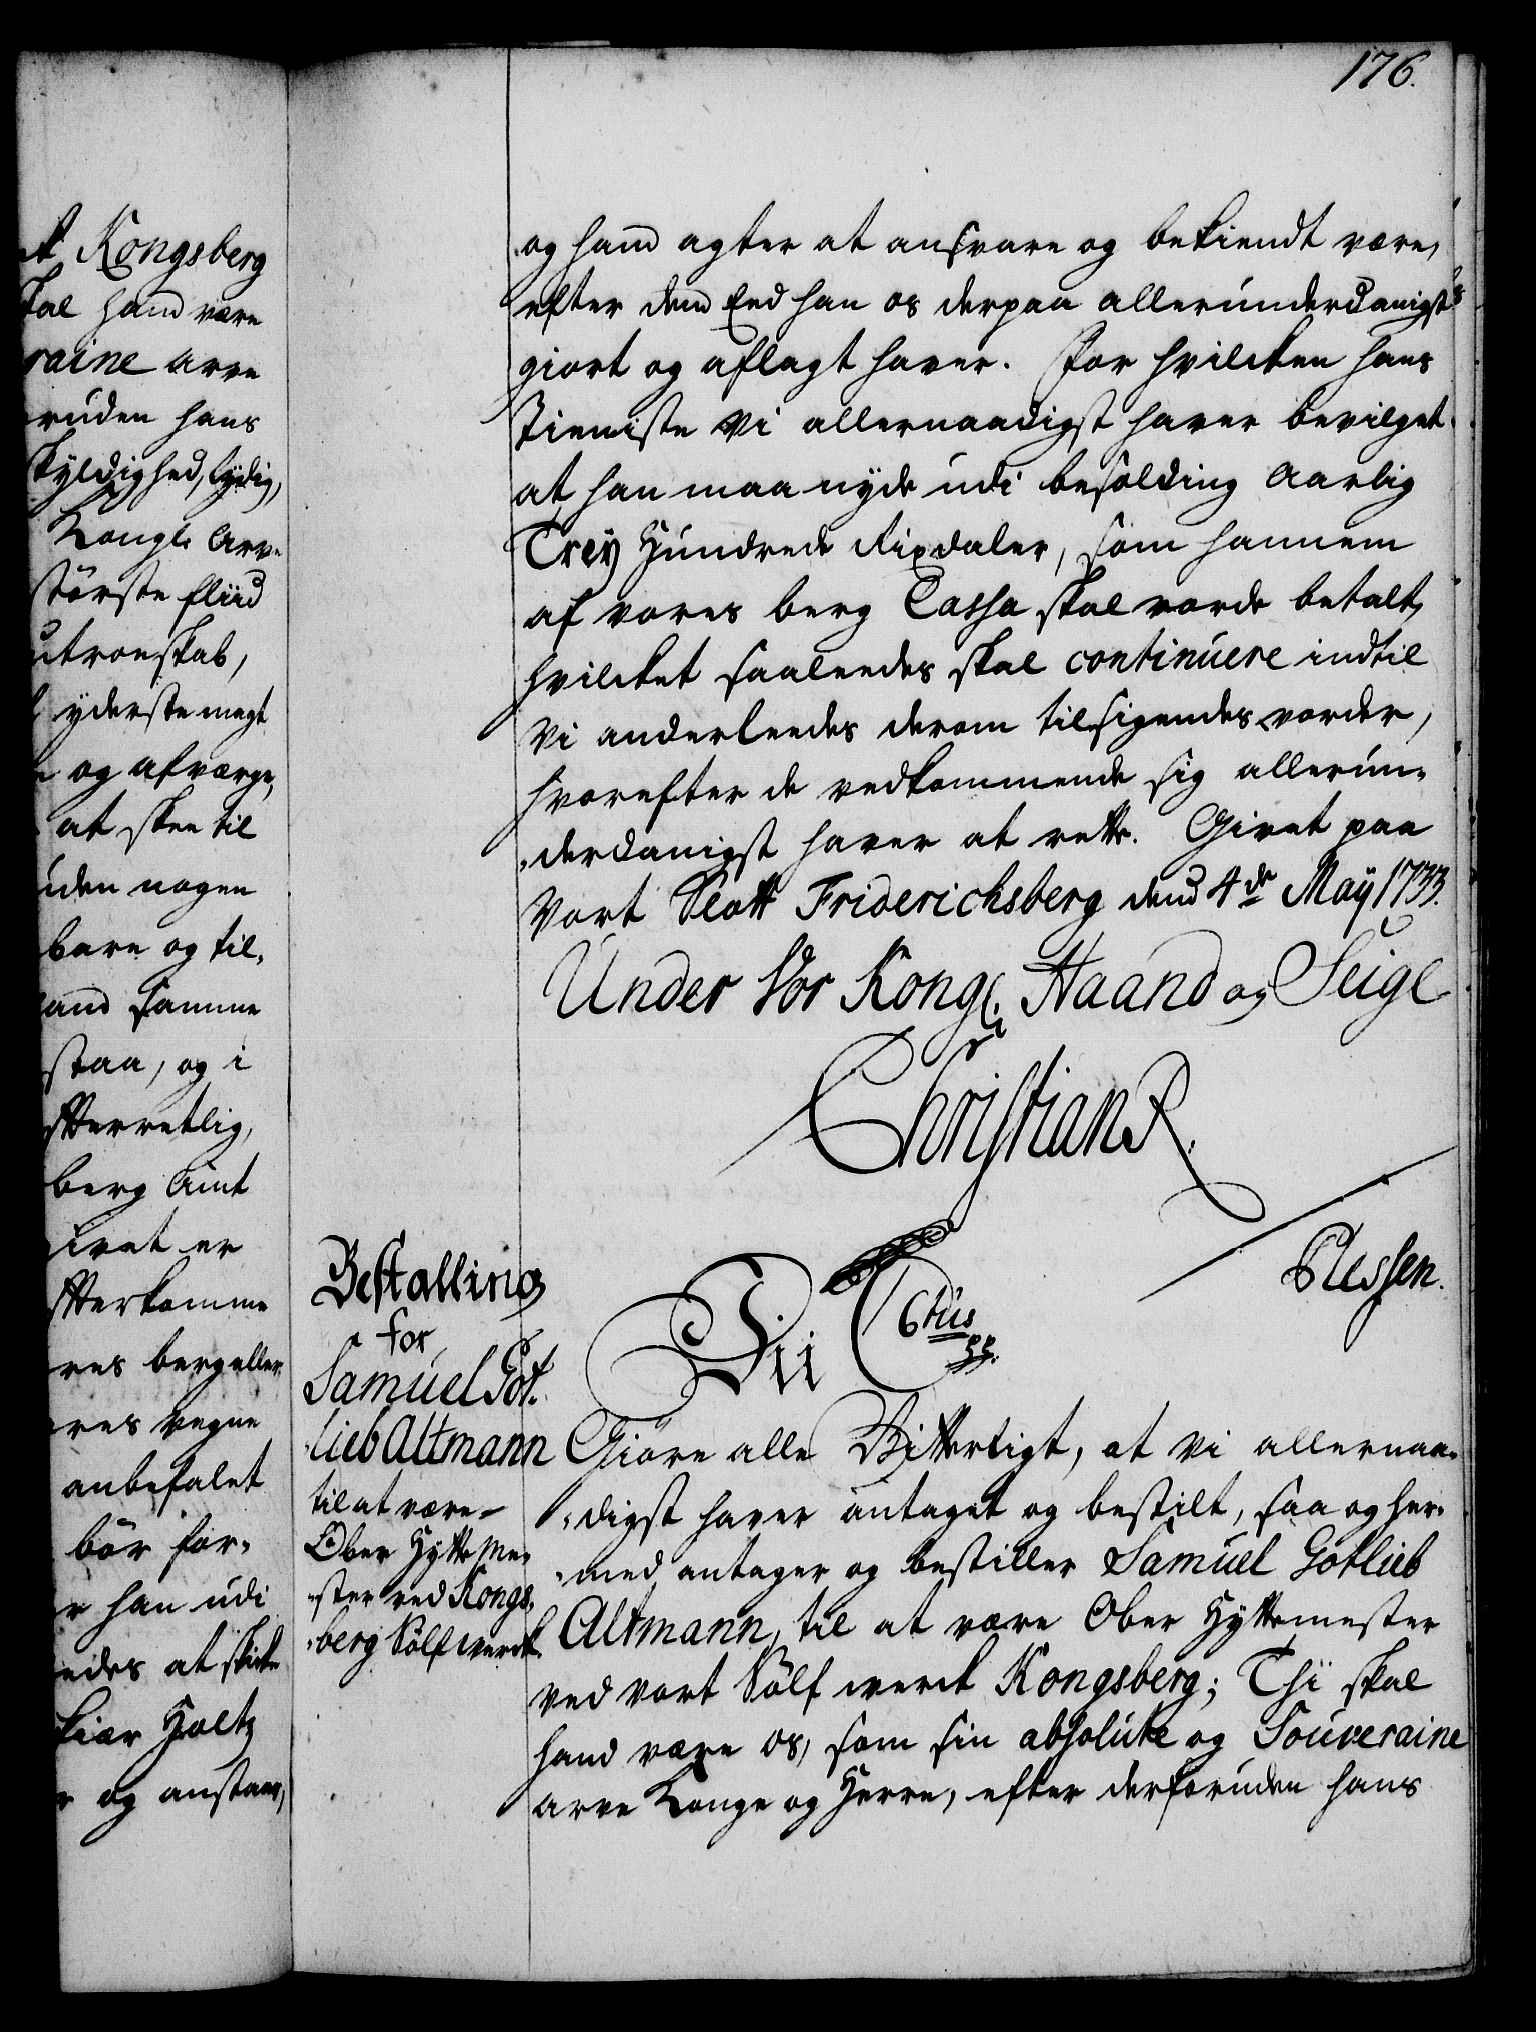 176.
et Kongsberg
skal hand være
raine arve
ruden hans
skyldighed, lydig,
Kongl. Arve
störste fliid
utroeskab,
yderste magt
og afværge,
at skee til
uden nogen
bare og til-
and samme
staa, og i
efterretlig,
berg Amt
givet er
efterkomme
res berg eller
res vegne
anbefalet
bör for-
r han udi
edes at skicke
kiær Holtz
r og anstaar,
og hand agter at ansvare og bekiendt være,
efter dend Eed han os derpaa allerunderdanigst
giort og aflagt haver. For hvilcken hans
Tieniste Vi allernaadigst haver bevilget
at han maa nyde udi besolding Aarlig
Trey Hundrede Rixdaler, som hannem
af vores berg Cassa skal vorde betalt,
hvilcket saaleedes skal continuere indtil
Vi anderleedes derom tilsigendes vorder,
hvorefter de vedkommende sig allerun-
-derdanigst haver at rette. Givet paa
Vort Slott Friderichsberg dend 4de Maÿ 1733.
Under Vor Kongl. Haand og Seigl
Christian R.
Plessen.
Bestalling
for
Samuel Got-
-lieb Altmann
til at være
Ober Hytte Me-
-ster ved Kongs-
-berg Sölfwerck.
Vii C 6tus
pp.
Giöre alle Vitterligt, at Vi allernaa-
-digst haver antaget og bestilt, saa og her-
-med antager og bestiller Samuel Gotlieb
Altmann, til at være Ober Hyttemester
ved vort Sölf werck Kongsberg; Thi skal
hand være os, som sin absolute og Souveraine
arve Konge og Herre, efter derforuden hans